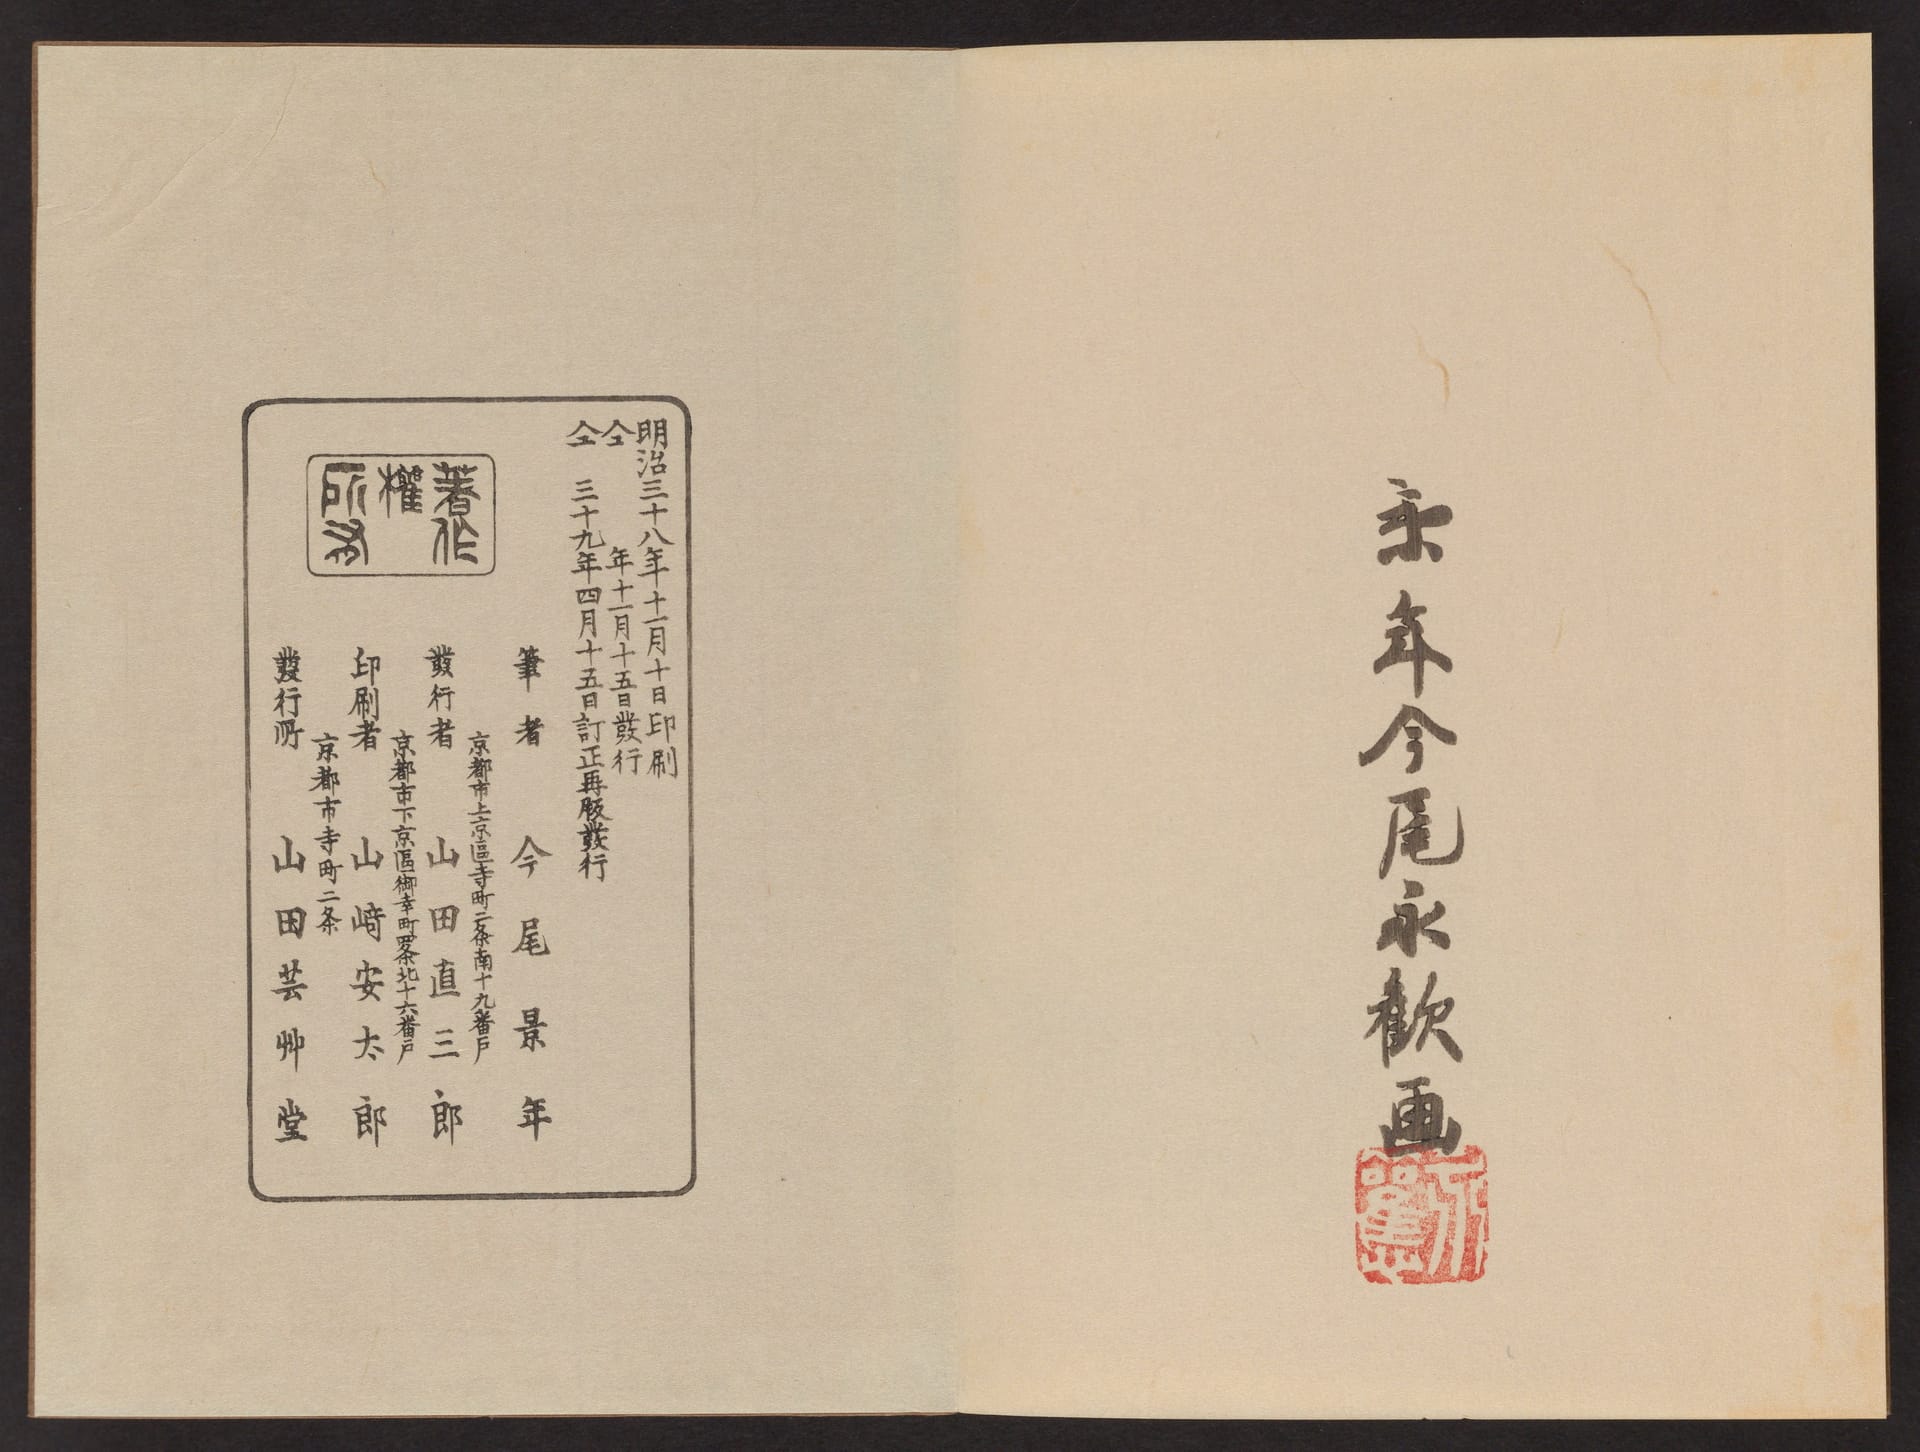 景年今尾永歓画
明治三十八年十一月十日印刷
仝 年十一月十五日發行
仝 三十九年四月十五日訂正再版發行
著作
權
所有
筆者 今尾景年
京都市上京區寺町二条南十九番戸
發行者 山田直三郎
京都市下京區御幸町四条北十六番戸
印刷者 山﨑安太郎
京都市寺町二条
發行所 山田芸艸堂